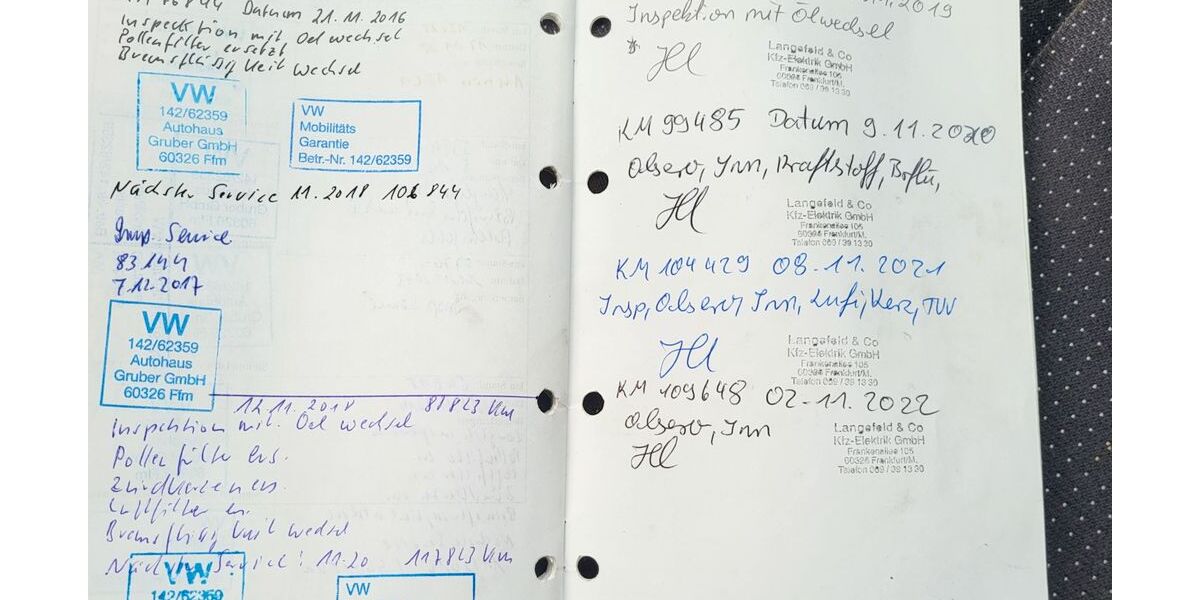 76844 Datum 21.11.2016
Inspecktion mit Oel wechsel
Pollenfilter ersetzt
Bremsflüssig keit wechsel
VW
142/62359
Autohaus
Gruber GmbH
60326 Ffm
VW
Mobilitäts
Garantie
Betr.-Nr. 142/62359
Nächste Service 11.2018 106844
Insp. Service
83144
7.12.2017
VW
142/62359
Autohaus
Gruber GmbH
60326 Ffm
12.11.2018 87823 Km
Inspektion mit Oel wechsel
Pollenfilter ers.
Zündkerzen ers.
Luftfilter er.
Bremsflüssig keit wechsel
Nächste Service: 11.20 117823 Km
VW
142/62359
VW
2019
Inspektion mit Ölwechsel
Langefeld & Co
Kfz-Elektrik GmbH
Frankenallee 105
60326 Frankfurt/M.
Telefon 069 / 39 13 30
KM 99485 Datum 9.11.2020
Ölserv, Inn, Kraftstoff, Brflü,
Langefeld & Co
Kfz-Elektrik GmbH
Frankenallee 105
60326 Frankfurt/M.
Telefon 069 / 39 13 30
KM 104429 08.11.2021
Insp, Ölserv, Inn, Lufi, Kerz, TÜV
Langefeld & Co
Kfz-Elektrik GmbH
Frankenallee 105
60326 Frankfurt/M.
Telefon 069 / 39 13 30
KM 109648 02-11.2022
Ölserv, Inn
Langefeld & Co
Kfz-Elektrik GmbH
Frankenallee 105
60326 Frankfurt/M.
Telefon 069 / 39 13 30